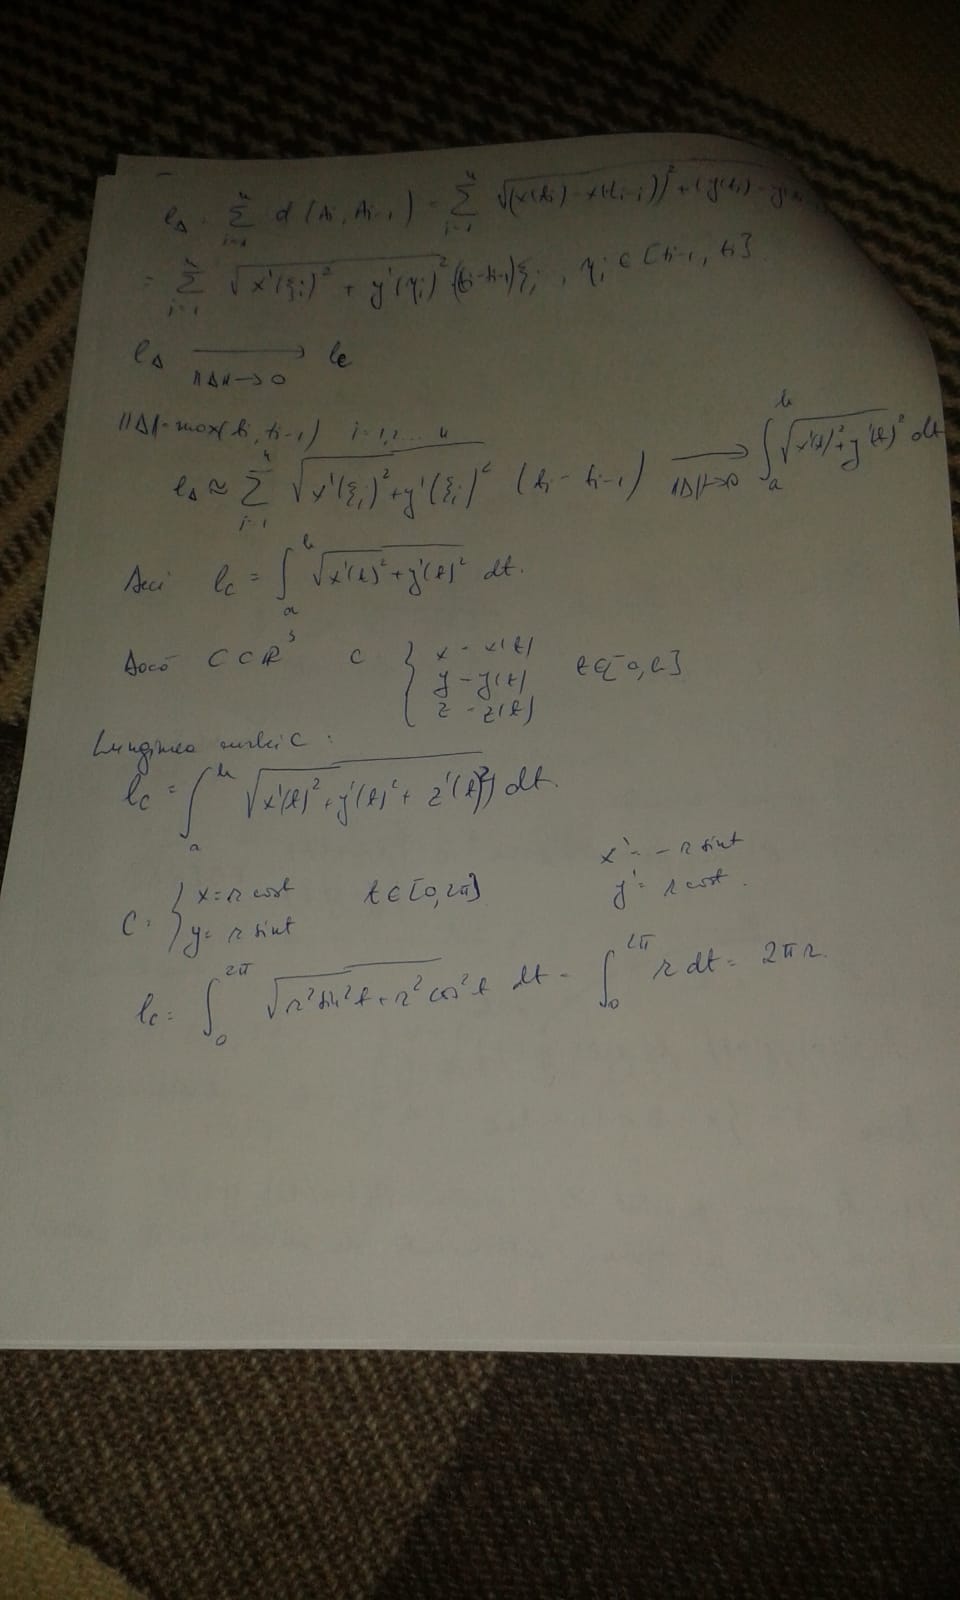 l_Δ = Σ_{i=1}^{n} d(A_i, A_{i-1}) = Σ_{i=1}^{n} √((x(t_i) - x(t_{i-1}))² + (y(t_i) - y
= Σ_{i=1}^{n} √(x'(ξ_i)² + y'(η_i)²) (t_i - t_{i-1}) ξ_i, η_i ∈ [t_{i-1}, t_i]
l_Δ →_{||Δ||→0} l_C
||Δ|| = max(t_i, t_{i-1}) i = 1,2,... n
l_Δ ≈ Σ_{i=1}^{n} √(x'(ξ_i)² + y'(ξ_i)²) (t_i - t_{i-1}) →_{||Δ||→0} ∫_a^b √(x'(t)² + y'(t)²) dt
Deci l_C = ∫_a^b √(x'(t)² + y'(t)²) dt.
Dacă C ⊂ R³ C { x = x(t) y = y(t) z = z(t) t ∈ [a, b]
Lungimea curbei C:
l_C = ∫_a^b √(x'(t)² + y'(t)² + z'(t)²) dt.
C: { x = r cos t y = r sin t t ∈ [0, 2π] x' = - r sin t y' = r cos t.
l_C = ∫_0^{2π} √(r² sin² t + r² cos² t) dt = ∫_0^{2π} r dt = 2π r.